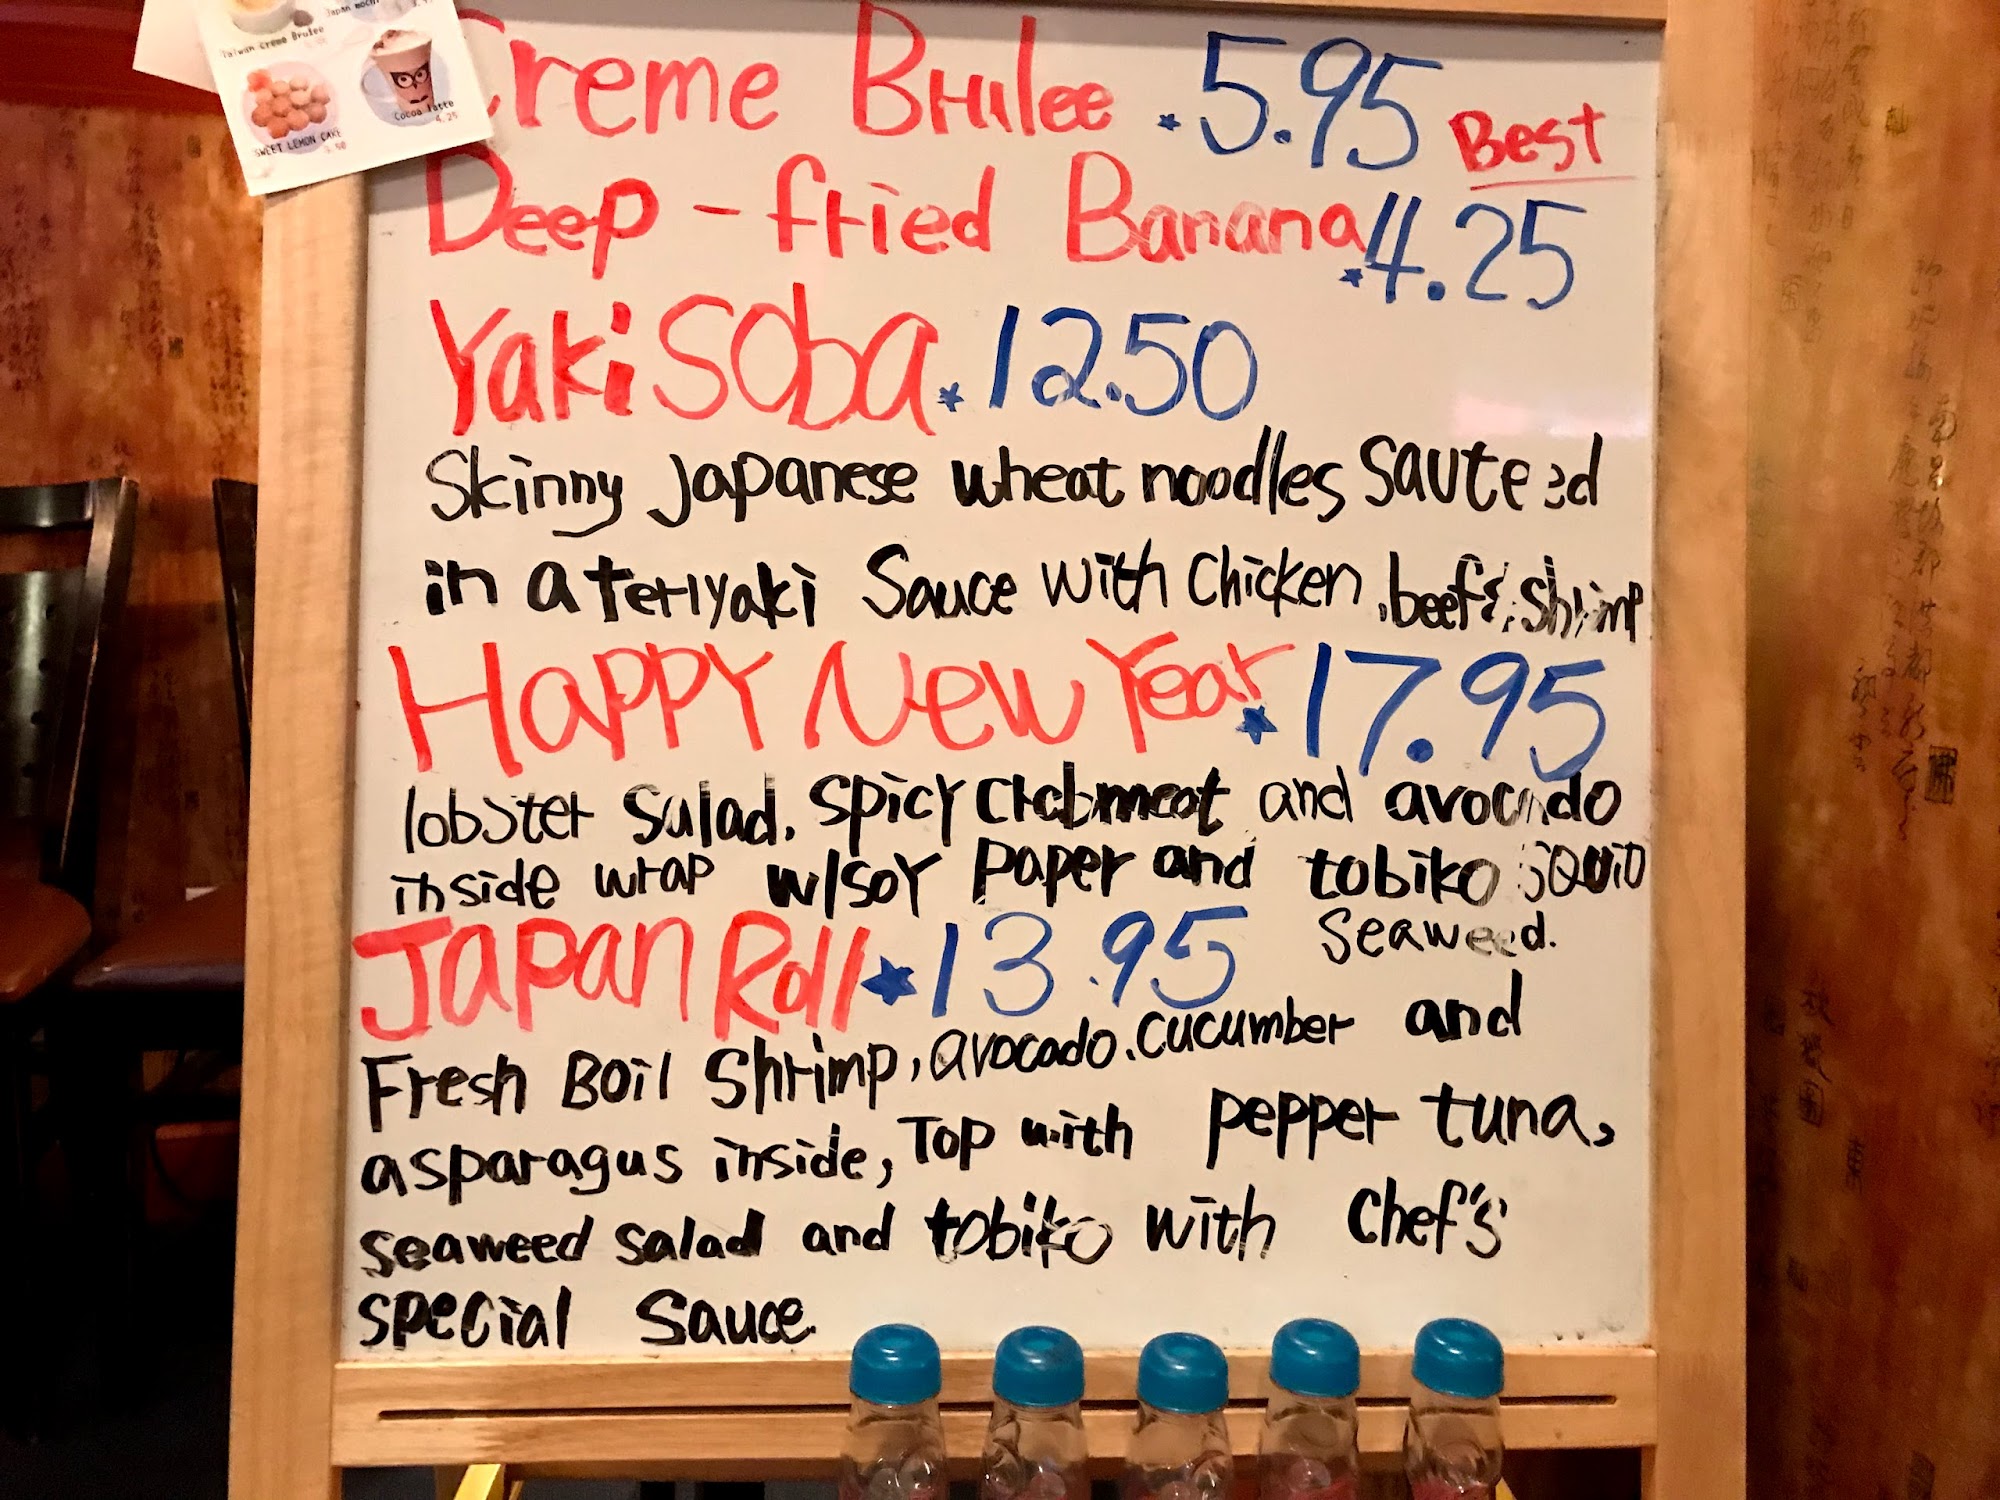 Japan mochi
Taiwan Creme Brulee
Cocoa latte
4.25
SWEET LEMON CAKE
Creme Brulee .5.95 Best
Deep-fried Banana .4.25
Yaki Soba .12.50
Skinny Japanese wheat noodles Sauteed
in a teriyaki Sauce with chicken, beef & shrimp
Happy New Year 17.95
lobster Salad. Spicy crabmeat and avocado
inside wrap w/soy paper and tobiko SQUID
Seaweed.
Japan Roll 13.95
Fresh Boil Shrimp, avocado. cucumber and
asparagus inside, Top with pepper tuna,
seaweed salad and tobiko with chef's
special Sauce